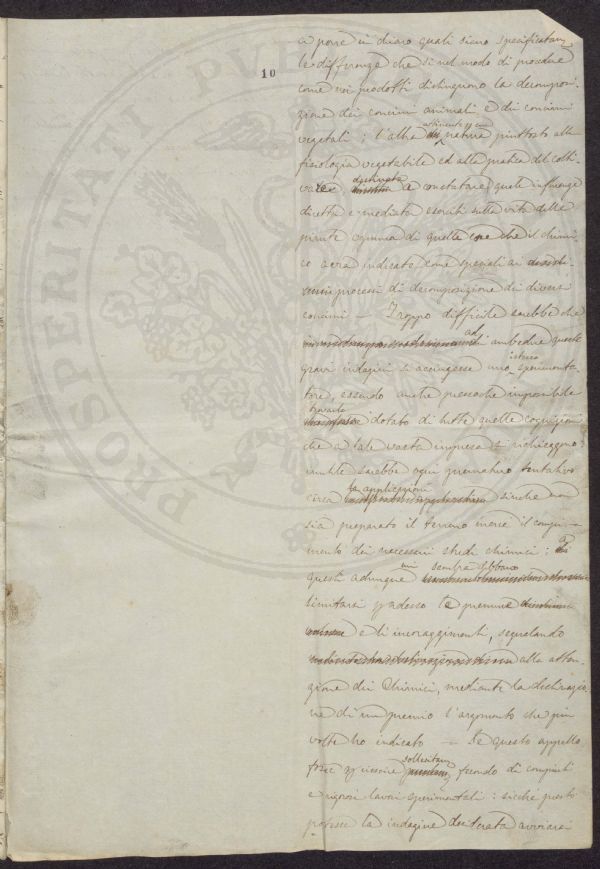 10
a porre in chiaro quali siano specificatam.
le differenze che sì nel modo di procedere
come nei prodotti distinguono la decomposi-
zione dei concimi animali e dei concimi
vegetali; l'altra attinente per sua natura piuttosto alla
fisiologia vegetabile ed alla pratica del colti-
vatore, destinata a constatare quale influenza
diretta e mediata eserciti sulla vita delle
piante ognuna di quelle cose che il chimi-
co avrà indicato come speciali ai
processi di decomposizione dei diversi
concimi — Troppo difficile sarebbe che
ad ambedue queste
gravi indagini si accingesse uno istesso sperimenta-
tore, essendo anche pressoché impossibile
trovarlo dotato di tutte quelle cognizioni
che a tale vasta impresa si richieggono
inutile sarebbe ogni prematuro tentativo
circa la applicazione sinché non
sia preparato il terreno mercè il compi-
mento dei necessari studi chimici: A
questi adunque mi sembra debbano
limitarsi per adesso le premure
e gli incoraggimenti, segnalando
alla atten-
zione dei Chimici, mediante la dichiarazio-
ne di un premio l'argomento che più
volte ho indicato — Se questo appello
fosse per riescire sollecitam. fecondo di compiuti
e rigorosi lavori sperimentali: sicché presto
potesse la indagine desiderata avviarsi